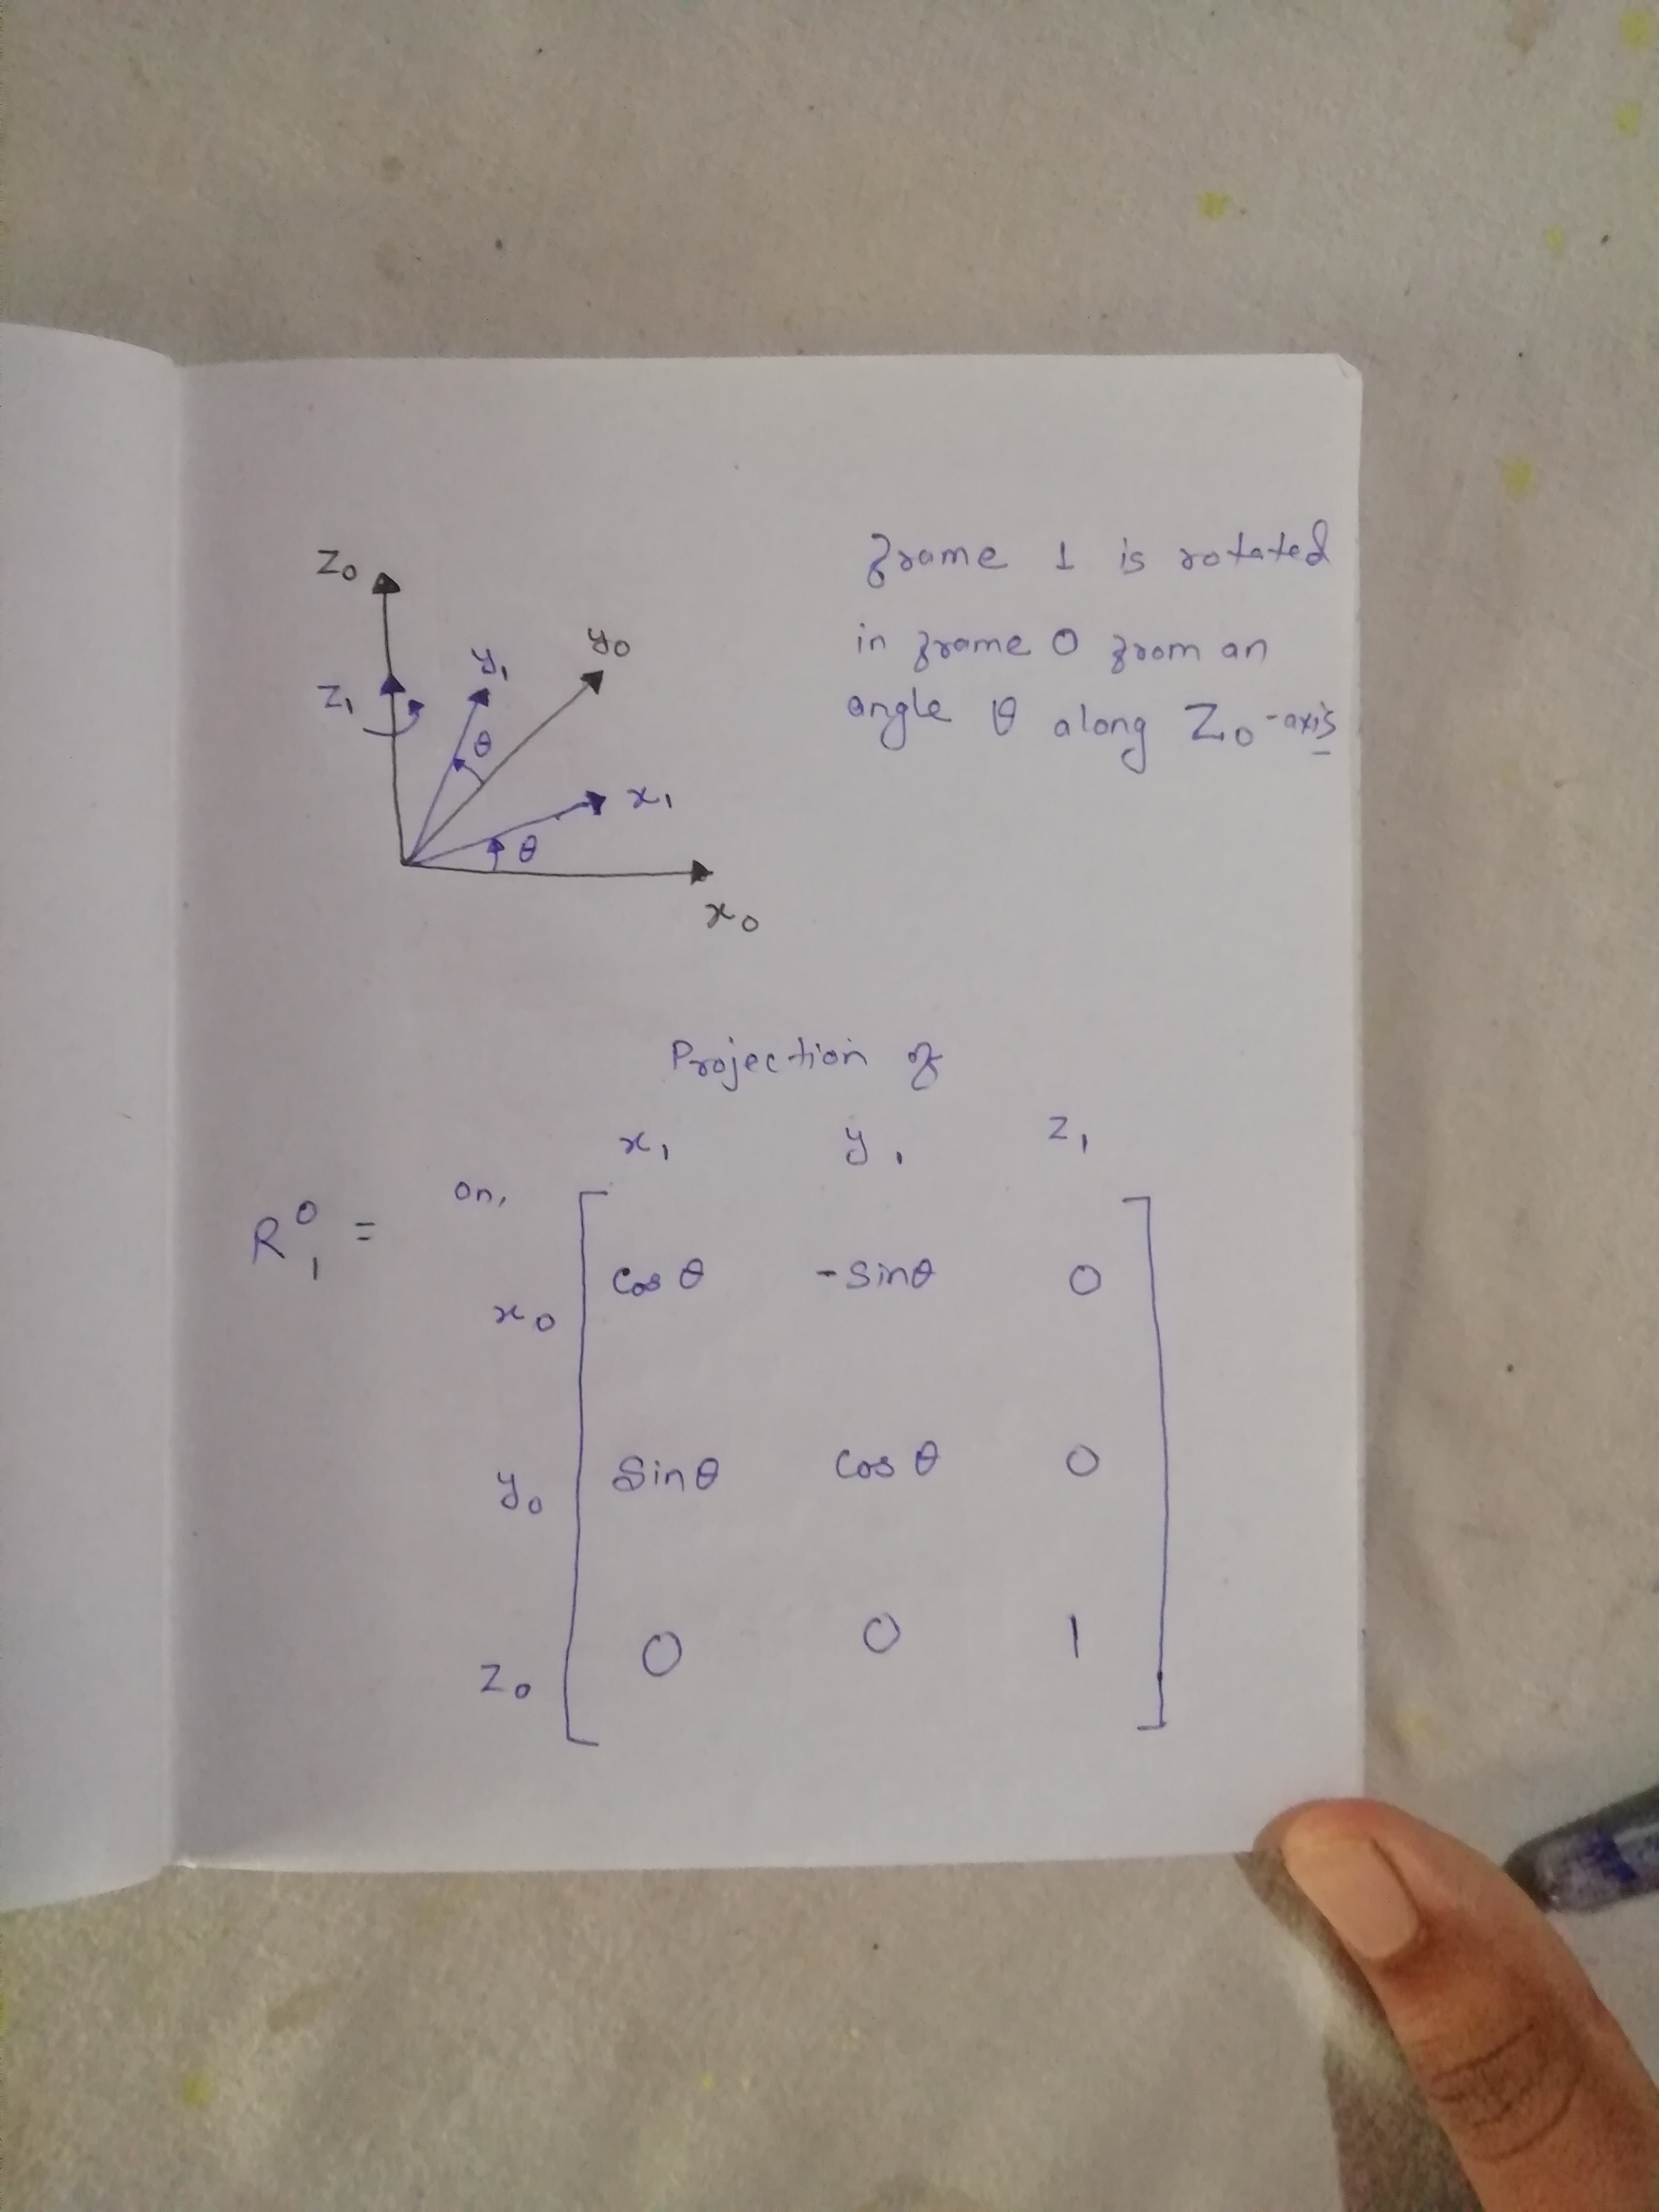 Z₀
y₀
y₁
Z₁
θ
x₁
θ
x₀
frame 1 is rotated
in frame 0 from an
angle θ along Z₀-axis
Projection of
x₁ y₁ z₁
on,
R⁰₁ =
x₀ cos θ -sinθ 0
y₀ sinθ cos θ 0
z₀ 0 0 1